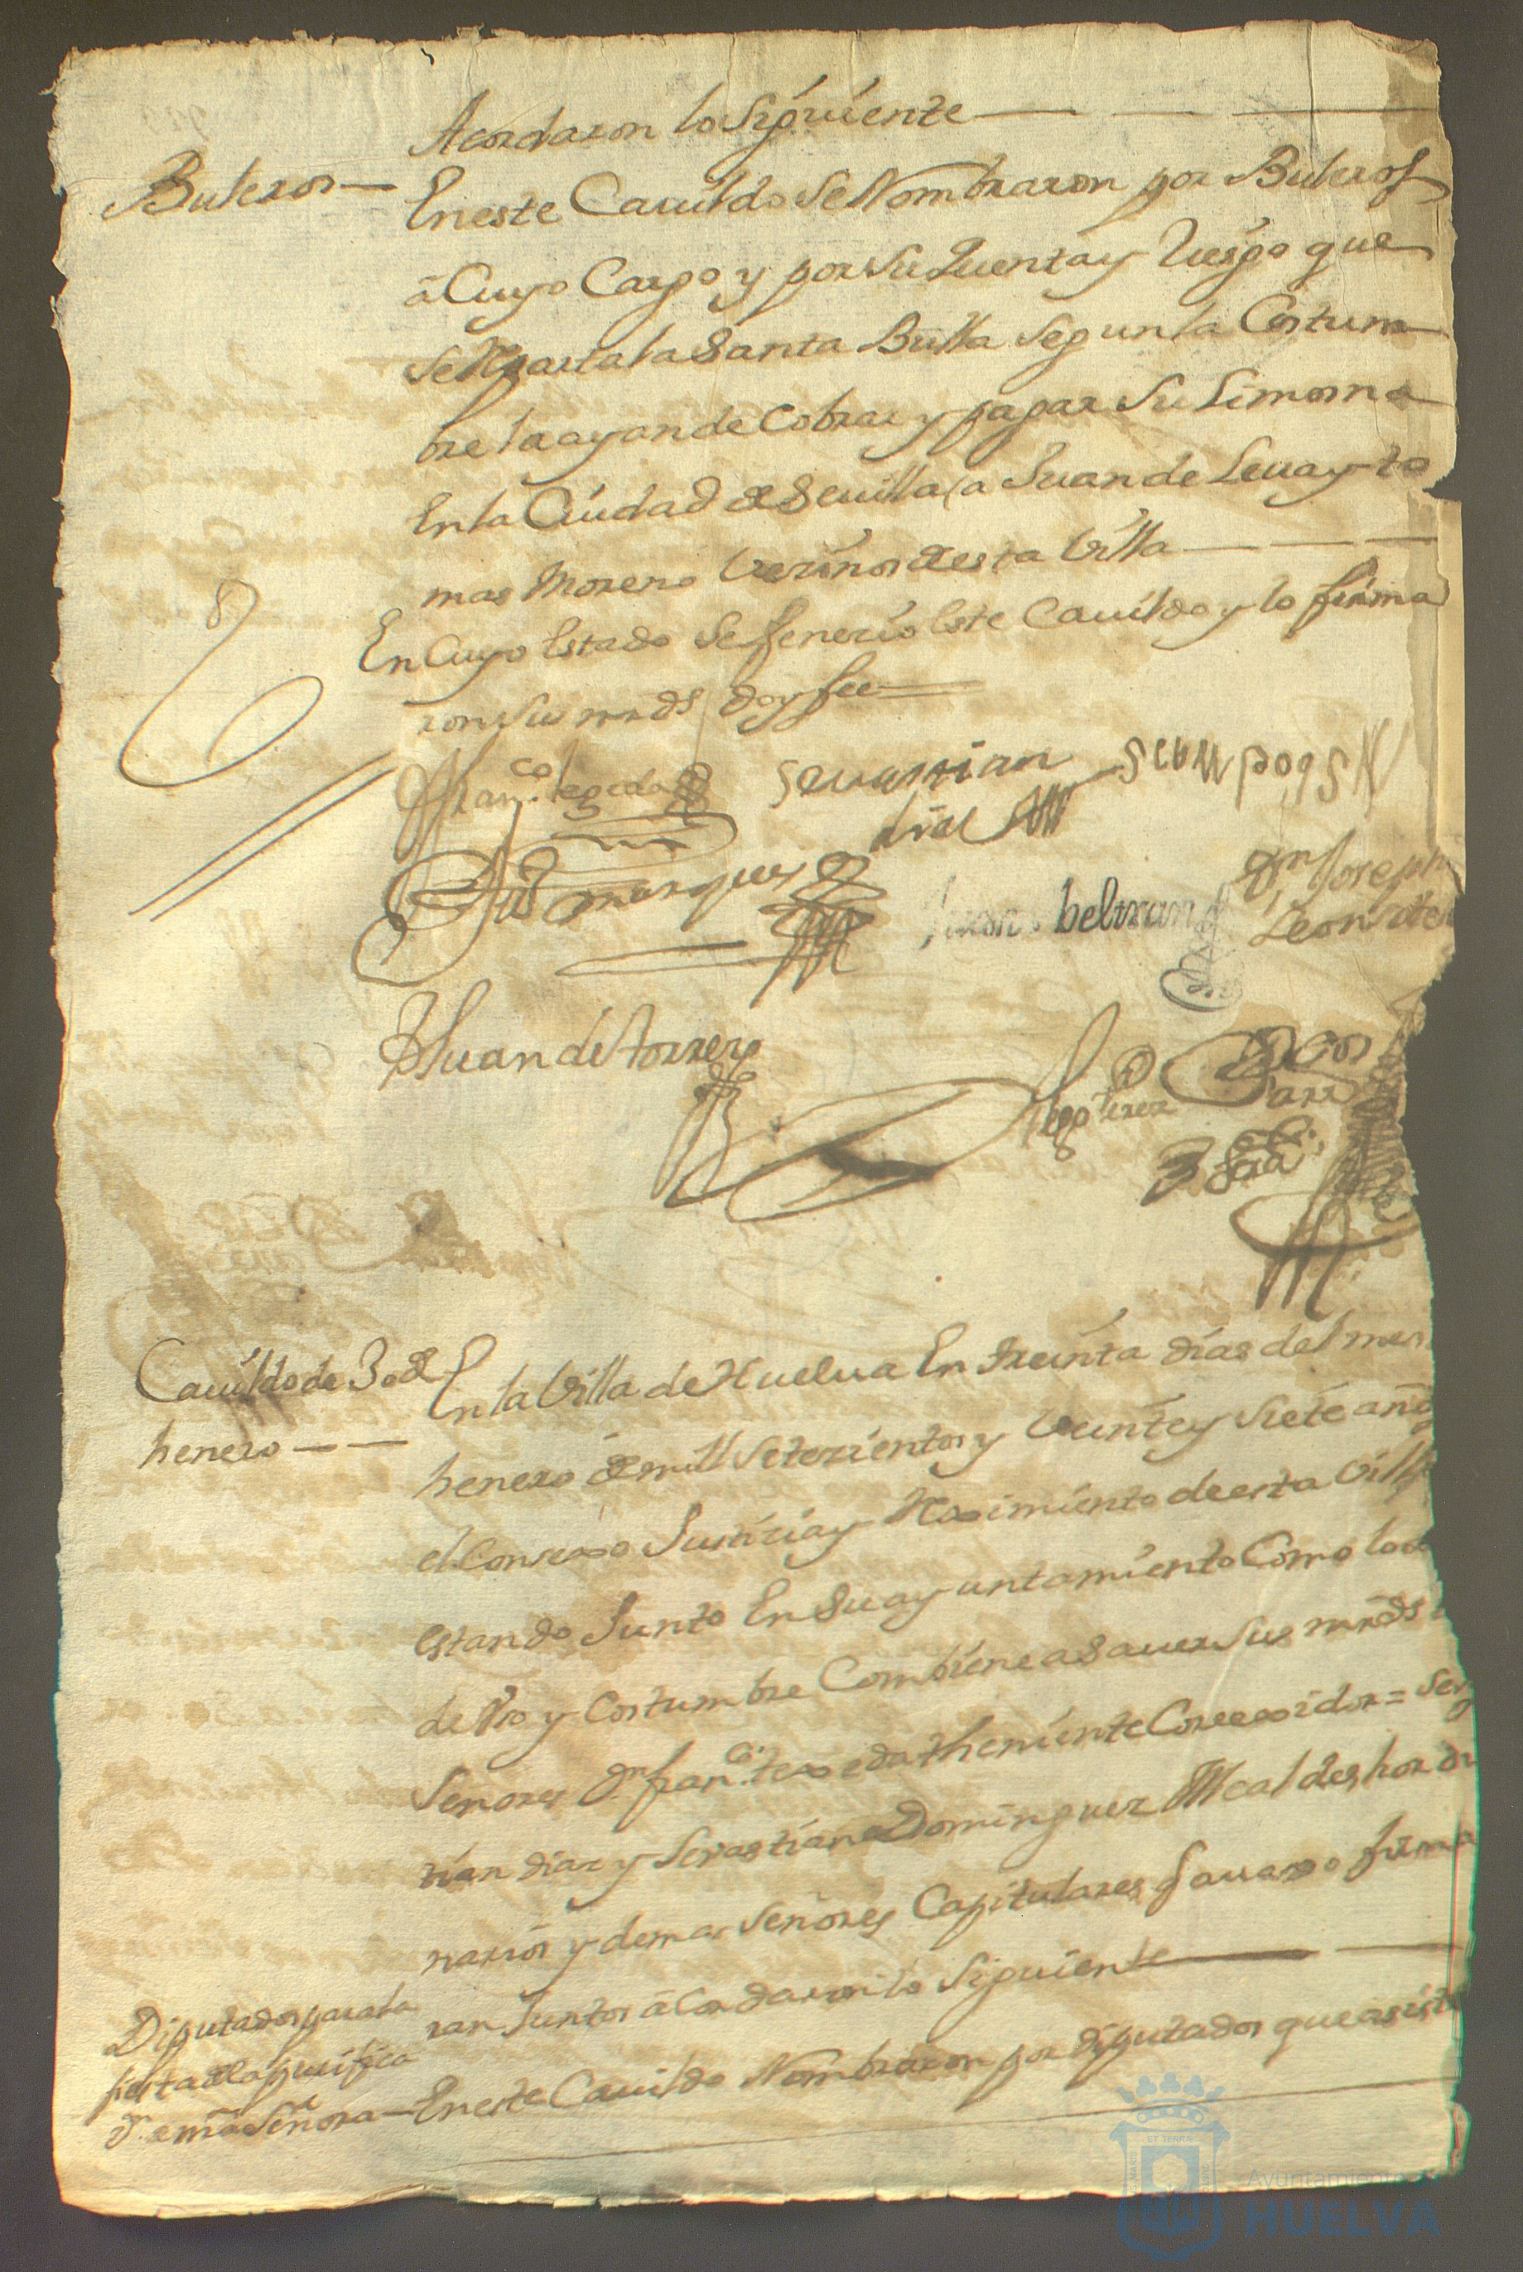 Acordaron lo Siguiente
Buleros
En este Cauildo Se Nombraron por Buleros
â Cuyo Cargo y por Su quenta y Riesgo que
Se Reparta la Santa Bulla Segun la Costum
bre la ayan de Cobrar y pagar Su Limosna
En la Ciudad de Seuilla, a Juan de Leua y to
mas Moreno Vezinos de esta Villa
En Cuyo Estado Se feneçio Este Cauildo y lo firma
ron Sus mrds doy fee
Franco. texeda
Seuastian
dias
marques
Juan beltran
Dn Joseph
Leon
Juan de torres
Diego
Cauildo de 30 de
henero
En la Villa de Huelua En treinta dias del mes
henero de mill Setezientos y Veinte y Siete año
el Consexo Justiçia y Reximiento de esta Villa
estando Junto En Su ayuntamiento Como lo a
de Vso y Costumbre Combiene a Sauer Sus mrds
Señores Dn franco. texeda theniente Correxidor = Seu
tian diaz y Seuastian Dominguez Alcaldes hordi
narios y demas Señores Capitulares q auaxo firma
ran Juntos âCordaron lo Siguiente
Diputados para la
fiesta de la purifica
on. de nra Señora
En este Cauildo Nombraron por diputados que asista
ET TERRAE
Ayuntamiento
HUELVA